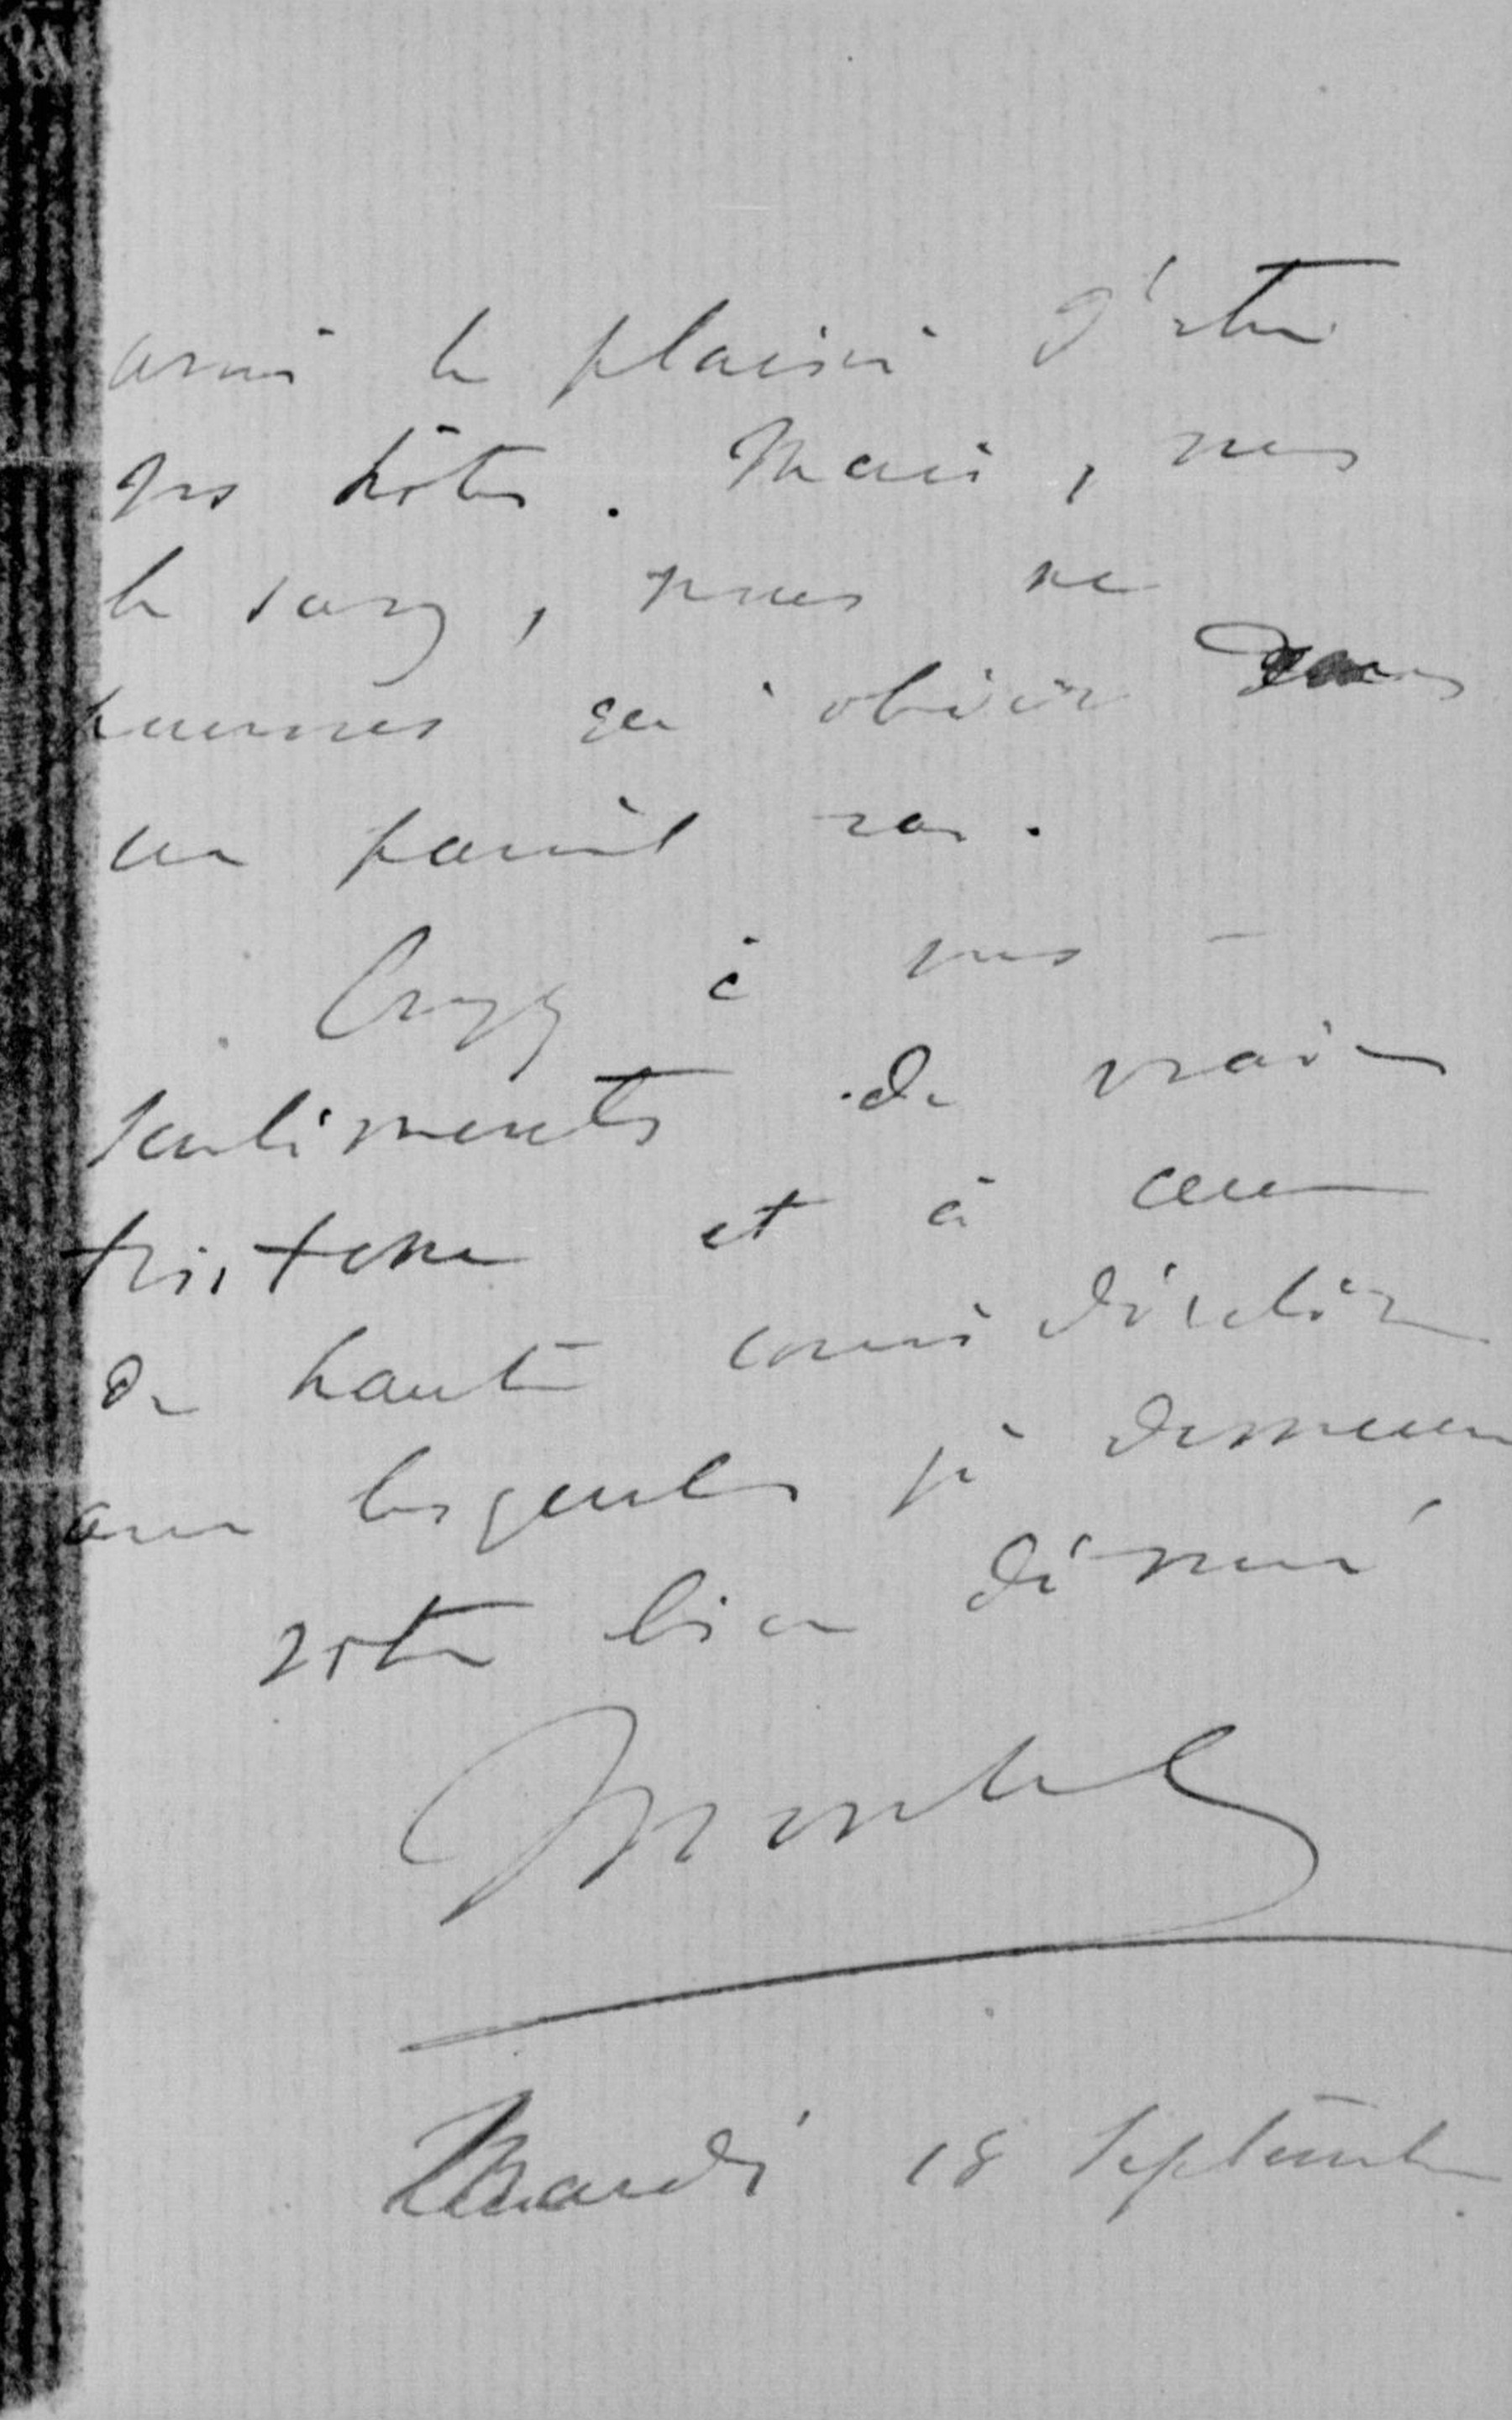 avoir le plaisir d'être
vos hôtes. Mais, vous
le savez, nous ne
pouvons qu'obéir dans
un pareil cas.
Croyez à mes
sentiments de vraie
tristesse et à ceux
de haute considération
avec lesquels je demeure
votre bien dévoué
Mardi 18 Septembre